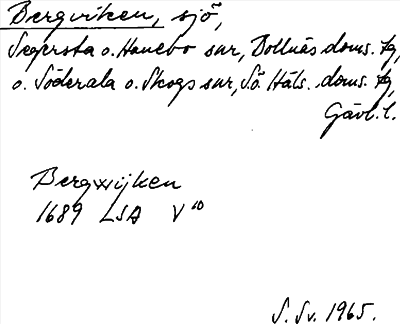 Bergviken, sjö,
Segersta o. Hanebo snr, Bollnäs doms. hg,
o. Söderala o. Skogs snr, Sö. Häls. doms. hg,
Gävl. l.
Bergwijken
1689 LSA V¹⁰
S. Sv. 1965.